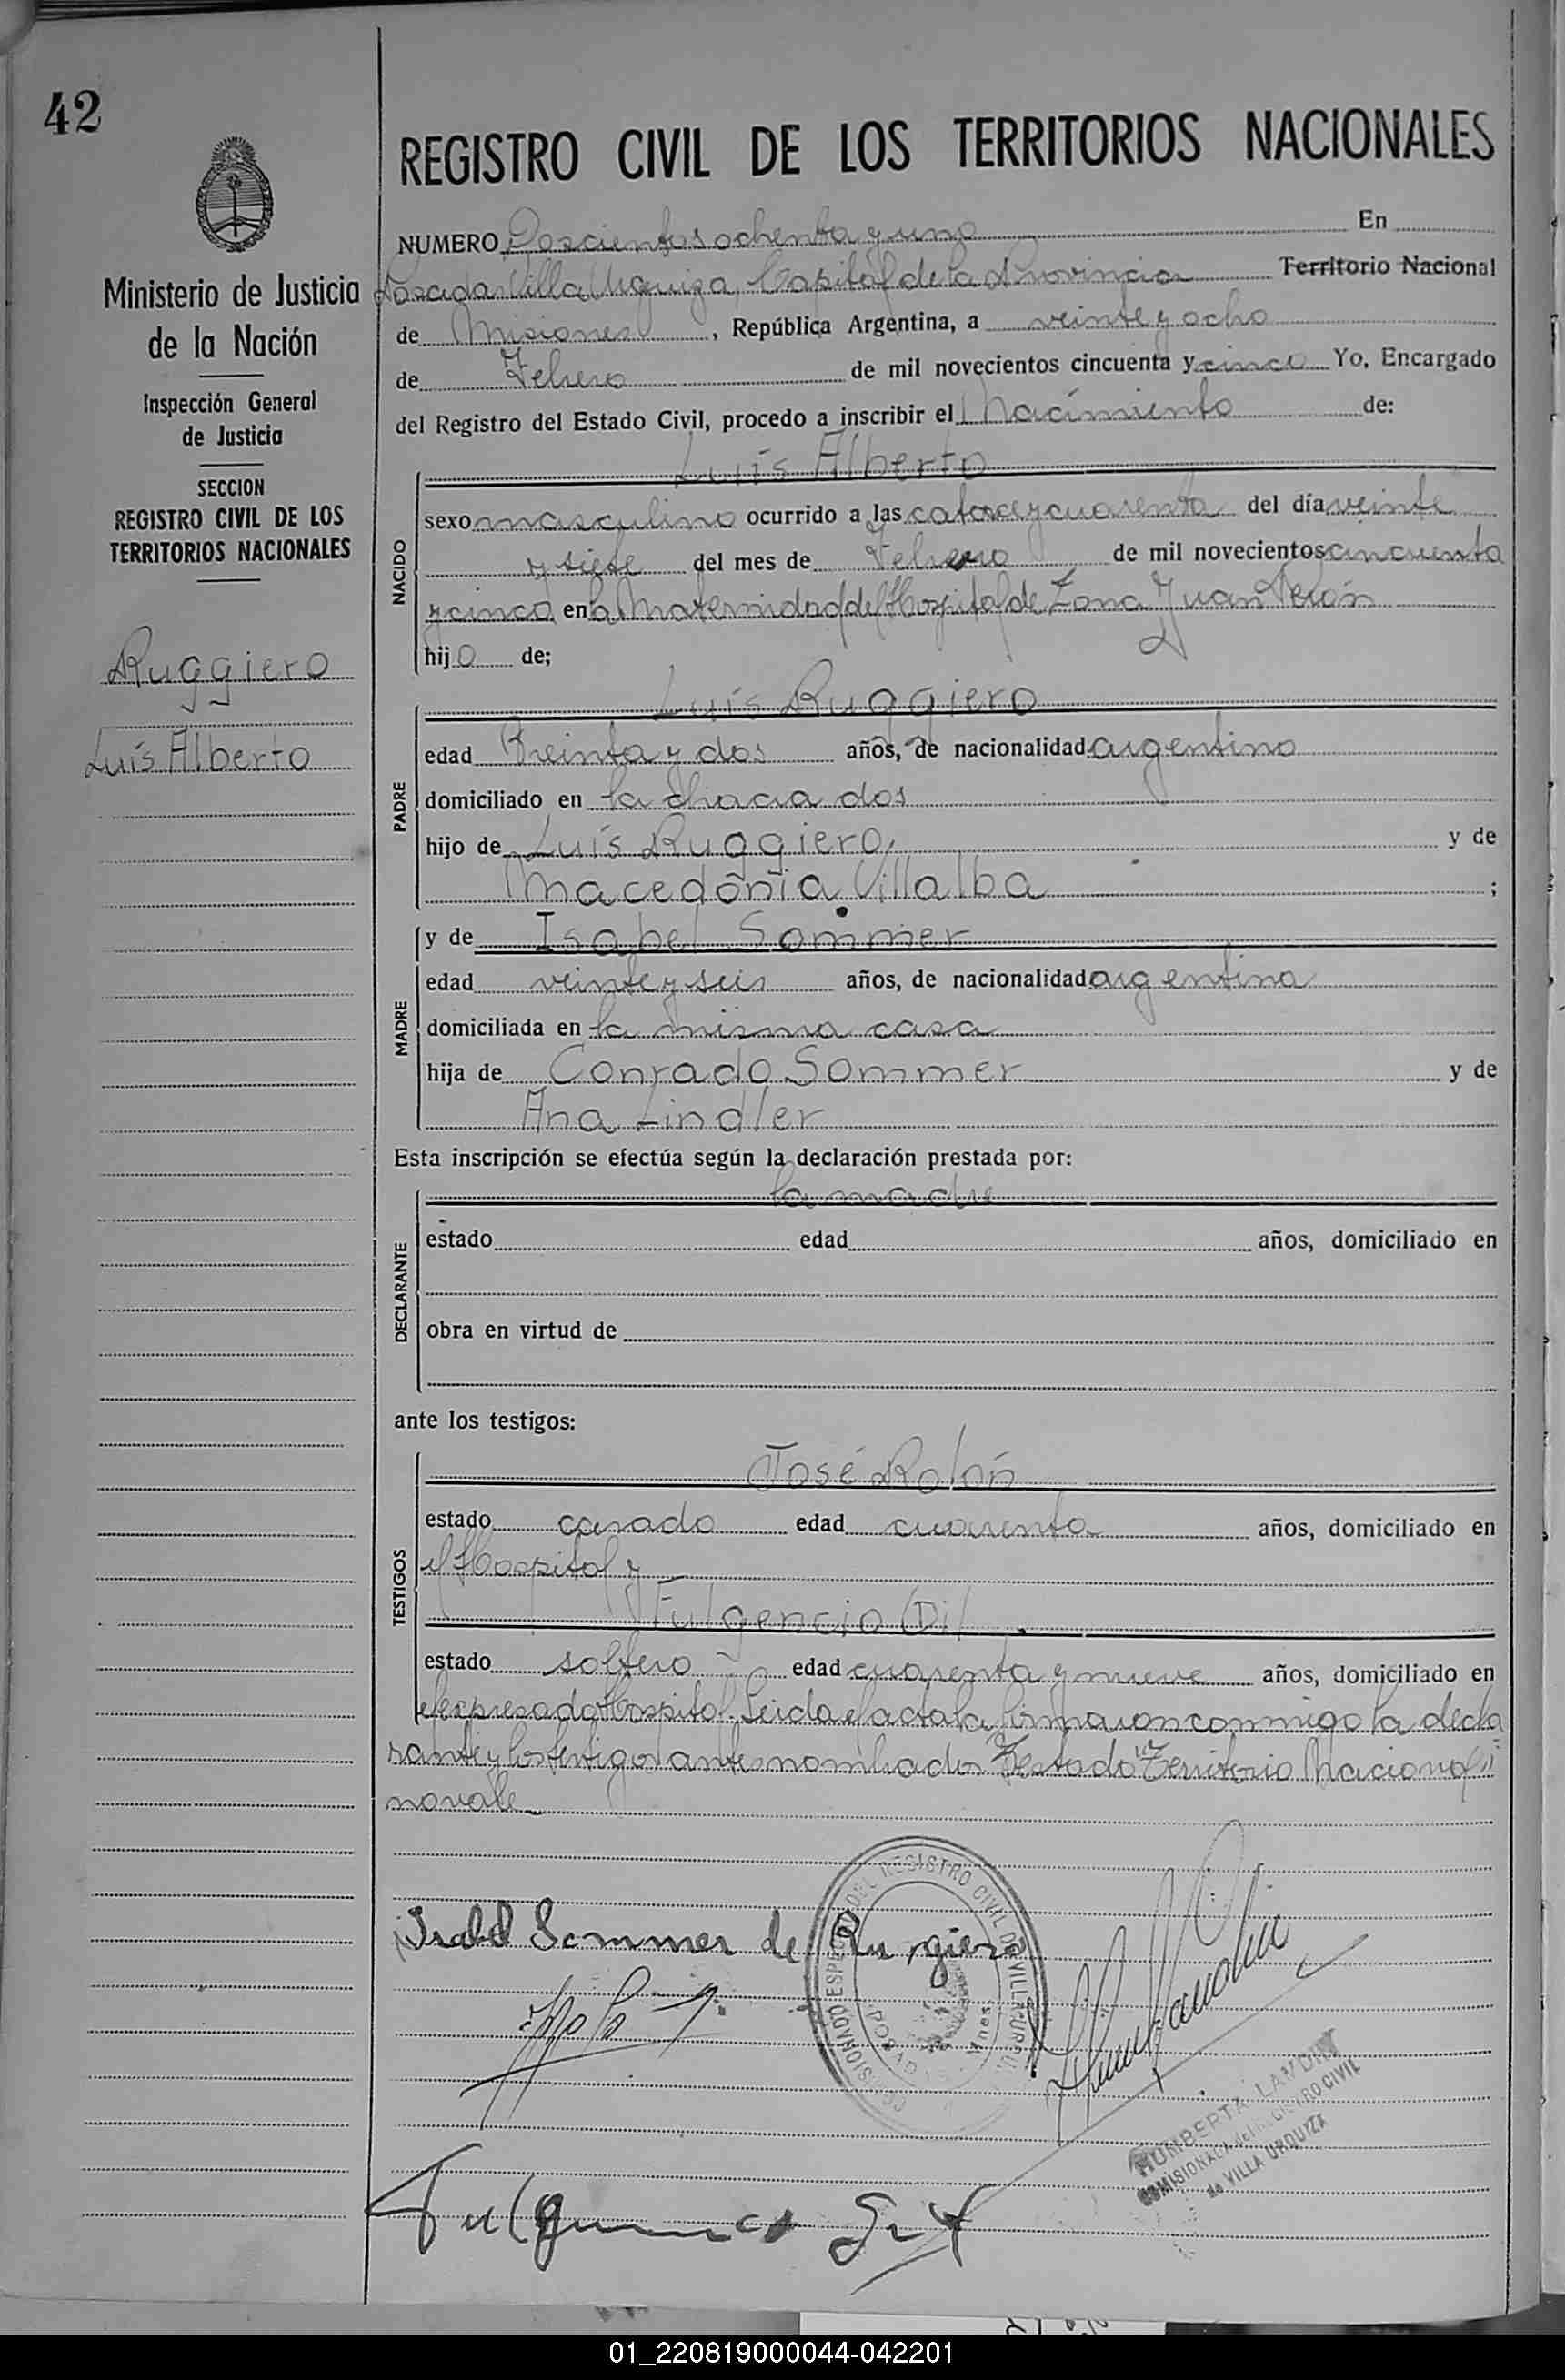 42
Ministerio de Justicia
de la Nación
Inspección General
de Justicia
SECCION
REGISTRO CIVIL DE LOS
TERRITORIOS NACIONALES
Ruggiero
Luis Alberto
REGISTRO CIVIL DE LOS TERRITORIOS NACIONALES
NUMERO Doscientos ochenta y uno En
Posadas Villa Urquiza, Capital de la Provincia Territorio Nacional
de Misiones, República Argentina, a veinte y ocho
de Febrero de mil novecientos cincuenta y cinco Yo, Encargado
del Registro del Estado Civil, procedo a inscribir el Nacimiento de:
NACIDO
Luis Alberto
sexo masculino ocurrido a las catorce y cuarenta del día veinte
y siete del mes de Febrero de mil novecientos cincuenta
y cinco en la Maternidad del Hospital de Zona Juan Perón
hijo de;
PADRE
Luis Ruggiero
edad Treinta y dos años, de nacionalidad argentino
domiciliado en la chacra dos
hijo de Luis Ruggiero, y de
Macedonia Villalba ;
MADRE
y de Isabel Sommer
edad veinte y seis años, de nacionalidad argentina
domiciliada en la misma casa
hija de Conrado Sommer y de
Ana Lindler
Esta inscripción se efectúa según la declaración prestada por:
DECLARANTE
la madre
estado edad años, domiciliado en
obra en virtud de
ante los testigos:
TESTIGOS
José Rolón
estado casado edad cuarenta años, domiciliado en
el Hospital y
Fulgencio
estado soltero edad cuarenta y nueve años, domiciliado en
el expresado Hospital. Leida el acta la firmaron conmigo la decla
rante y los testigos antes nombrados Testado "Territorio Nacional"
no vale
Isabel Sommer de Ruggiero
COMISIONADO ESPECIAL DEL REGISTRO CIVIL DE VILLA URQUIZA
POSADAS Mnes
HUMBERTA LANDIN
COMISIONADA del REGISTRO CIVIL
de VILLA URQUIZA
01_220819000044-042201